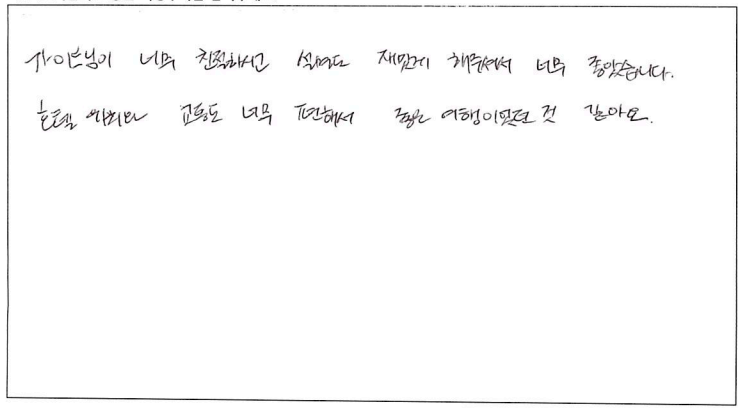 가이드님이 너무 친절하시고 설명도 재밌게 해주셔서 너무 좋았습니다.
호텔 위치와 교통도 너무 편해서 좋은 여행이었던 것 같아요.